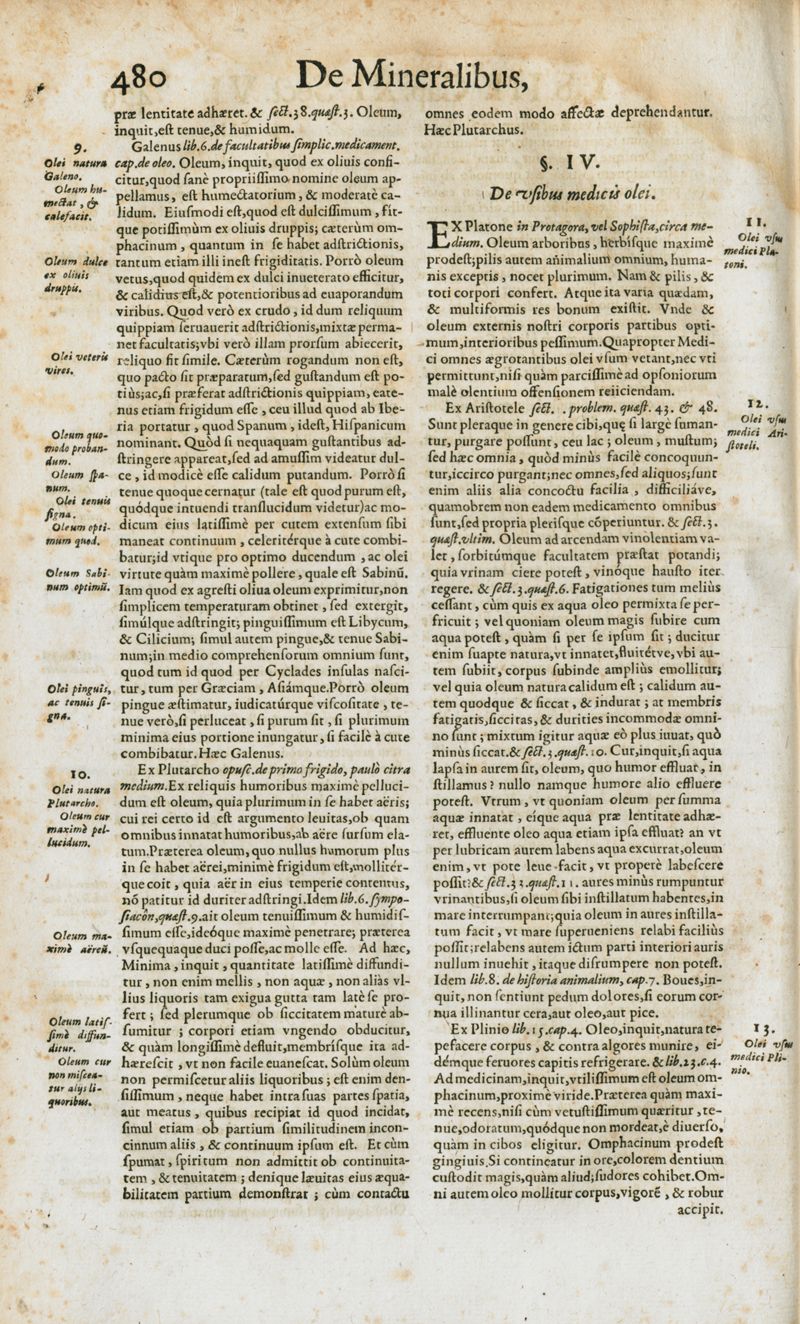 480 De Mineralibus,
9.
Olei natura
Galeno.
Oleum hu-
mectat, &
calefacit.
Oleum dulce
ex oliuis
druppis.
Olei veteris
vires.
Oleum quo-
modo proban-
dum.
Oleum ſpa-
num.
Olei tenuis
ſigna.
Oleum opti-
mum quod.
Oleum Sabi-
num optimũ.
Olei pinguis,
ac tenuis ſi-
gna.
10.
Olei natura
Plutarcho.
Oleum cur
maximè pel-
lucidum.
Oleum ma-
ximè aëreũ.
Oleum latiſ-
ſimè diffun-
ditur.
Oleum cur
non miſcea-
tur alijs li-
quoribus.
præ lentitate adhæret. & ſect.38.quæſt.3. Oleum,
inquit,eſt tenue,& humidum.
Galenus lib.6.de facultatibus ſimplic.medicament.
cap.de oleo. Oleum, inquit, quod ex oliuis confi-
citur,quod ſanè propriiſſimo nomine oleum ap-
pellamus, eſt humectatorium, & moderatè ca-
lidum. Eiuſmodi eſt,quod eſt dulciſſimum, fit-
que potiſſimùm ex oliuis druppis; cæterùm om-
phacinum, quantum in ſe habet adſtrictionis,
tantum etiam illi ineſt frigiditatis. Porrò oleum
vetus,quod quidem ex dulci inueterato efficitur,
& calidius eſt,& potentioribus ad euaporandum
viribus. Quod verò ex crudo, id dum reliquum
quippiam ſeruauerit adſtrictionis,mixtæ perma-
net facultatis;vbi verò illam prorſum abiecerit,
reliquo fit ſimile. Cæterùm rogandum non eſt,
quo pacto ſit præparatum,ſed guſtandum eſt po-
tiùs;ac,ſi præferat adſtrictionis quippiam, eate-
nus etiam frigidum eſſe, ceu illud quod ab Ibe-
ria portatur, quod Spanum, ideſt, Hiſpanicum
nominant. Quòd ſi nequaquam guſtantibus ad-
ſtringere appareat,ſed ad amuſſim videatur dul-
ce, id modicè eſſe calidum putandum. Porrò ſi
tenue quoque cernatur (tale eſt quod purum eſt,
quódque intuendi tranſlucidum videtur) ac mo-
dicum eius latiſſimè per cutem extenſum ſibi
maneat continuum, celeritérque à cute combi-
batur;id vtique pro optimo ducendum, ac olei
virtute quàm maximè pollere, quale eſt Sabinũ.
Iam quod ex agreſti oliua oleum exprimitur,non
ſimplicem temperaturam obtinet, ſed extergit,
ſimúlque adſtringit; pinguiſſimum eſt Libycum,
& Cilicium; ſimul autem pingue,& tenue Sabi-
num;in medio comprehenſorum omnium ſunt,
quod tum id quod per Cyclades inſulas naſci-
tur, tum per Græciam, Aſiámque.Porrò oleum
pingue æſtimatur, iudicatúrque viſcoſitate, te-
nue verò,ſi perluceat, ſi purum ſit, ſi plurimum
minima eius portione inungatur, ſi facilè à cute
combibatur.Hæc Galenus.
Ex Plutarcho opuſc.de primo frigido, paulò citra
medium.Ex reliquis humoribus maximè pelluci-
dum eſt oleum, quia plurimum in ſe habet aëris;
cui rei certo id eſt argumento leuitas,ob quam
omnibus innatat humoribus,ab aëre ſurſum ela-
tum.Præterea oleum,quo nullus humorum plus
in ſe habet aërei,minimè frigidum eſt,mollitér-
que coit, quia aër in eius temperie contentus,
nó patitur id duriter adſtringi.Idem lib.6.ſympo-
ſiacôn,quæſt.9.ait oleum tenuiſſimum & humidiſ-
ſimum eſſe,ideóque maximè penetrare; præterea
vſquequaque duci poſſe,ac molle eſſe. Ad hæc,
Minima, inquit, quantitate latiſſimè diffundi-
tur, non enim mellis, non aquæ, non aliàs vl-
lius liquoris tam exigua gutta tam latè ſe pro-
fert; ſed plerumque ob ſiccitatem maturè ab-
ſumitur; corpori etiam vngendo obducitur,
& quàm longiſſimè defluit,membríſque ita ad-
hæreſcit, vt non facile euaneſcat. Solùm oleum
non permiſcetur aliis liquoribus; eſt enim den-
ſiſſimum, neque habet intra ſuas partes ſpatia,
aut meatus, quibus recipiat id quod incidat,
ſimul etiam ob partium ſimilitudinem incon-
cinnum aliis, & continuum ipſum eſt. Et cùm
ſpumat, ſpiritum non admittit ob continuita-
tem, & tenuitatem; denique læuitas eius æqua-
bilitatem partium demonſtrat; cùm contactu
omnes eodem modo affectæ deprehendantur.
Hæc Plutarchus.
§. IV.
De vſibus medicis olei.
EX Platone in Protagora, vel Sophiſta,circa me-
dium. Oleum arboribus, herbiſque maximè
prodeſt;pilis autem animalium omnium, huma-
nis exceptis, nocet plurimum. Nam & pilis, &
toti corpori confert. Atque ita varia quædam,
& multiformis res bonum exiſtit. Vnde &
oleum externis noſtri corporis partibus opti-
mum,interioribus peſſimum.Quapropter Medi-
ci omnes ægrotantibus olei vſum vetant,nec vti
permittunt,niſi quàm parciſſimè ad opſoniorum
malè olentium offenſionem reiiciendam.
Ex Ariſtotele ſect. . problem. quæſt. 43. & 48.
Sunt pleraque in genere cibi,quę ſi largè ſuman-
tur, purgare poſſunt, ceu lac; oleum, muſtum;
ſed hæc omnia, quòd minùs facilè concoquun-
tur,iccirco purgant;nec omnes,ſed aliquos;ſunt
enim aliis alia concoctu facilia, difficiliáve,
quamobrem non eadem medicamento omnibus
ſunt,ſed propria pleriſque cõperiuntur. & ſect.3.
quæſt.vltim. Oleum ad arcendam vinolentiam va-
let, ſorbitúmque facultatem præſtat potandi;
quia vrinam ciere poteſt, vinóque hauſto iter
regere. & ſect.3.quæſt.6. Fatigationes tum meliùs
ceſſant, cùm quis ex aqua oleo permixta ſe per-
fricuit; vel quoniam oleum magis ſubire cum
aqua poteſt, quàm ſi per ſe ipſum ſit; ducitur
enim ſuapte natura,vt innatet,fluitétve,vbi au-
tem ſubiit, corpus ſubinde ampliùs emollitur;
vel quia oleum natura calidum eſt; calidum au-
tem quodque & ſiccat, & indurat; at membris
fatigatis,ſiccitas, & durities incommodæ omni-
no ſunt; mixtum igitur aquæ eò plus iuuat, quò
minùs ſiccat.& ſect.3.quæſt.10. Cur,inquit,ſi aqua
lapſa in aurem ſit, oleum, quo humor effluat, in
ſtillamus? nullo namque humore alio effluere
poteſt. Vtrum, vt quoniam oleum per ſumma
aquæ innatat, eíque aqua præ lentitate adhæ-
ret, effluente oleo aqua etiam ipſa effluat? an vt
per lubricam aurem labens aqua excurrat,oleum
enim, vt pote leue facit, vt properè labeſcere
poſſit?& ſect.33.quæſt.11. aures minùs rumpuntur
vrinantibus,ſi oleum ſibi inſtillatum habentes,in
mare interrumpant;quia oleum in aures inſtilla-
tum facit, vt mare ſuperueniens relabi faciliùs
poſſit;relabens autem ictum parti interiori auris
nullum inuehit, itaque diſrumpere non poteſt.
Idem lib.8. de hiſtoria animalium, cap.7. Boues,in-
quit, non ſentiunt pedum dolores,ſi eorum cor-
nua illinantur cera,aut oleo,aut pice.
Ex Plinio lib. 15.cap.4. Oleo,inquit,natura te-
pefacere corpus, & contra algores munire, ei-
démque feruores capitis refrigerare. & lib.23.c.4.
Ad medicinam,inquit,vtiliſſimum eſt oleum om-
phacinum,proximè viride.Præterea quàm maxi-
mè recens,niſi cùm vetuſtiſſimum quæritur, te-
nue,odoratum,quódque non mordeat,è diuerſo,
quàm in cibos eligitur. Omphacinum prodeſt
gingiuis.Si contineatur in ore,colorem dentium
cuſtodit magis,quàm aliud;ſudores cohibet.Om-
ni autem oleo mollitur corpus,vigorẽ, & robur
accipit.
11.
Olei vſus
medici Pla-
toni.
12.
Olei vſus
medici Ari-
ſtoteli.
13.
Olei vſus
medici Pli-
nio.